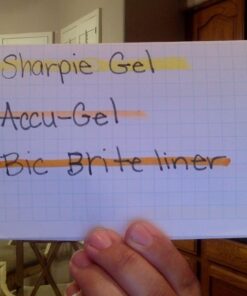 Sharpie Gel
Accu-Gel
Bic Brite liner